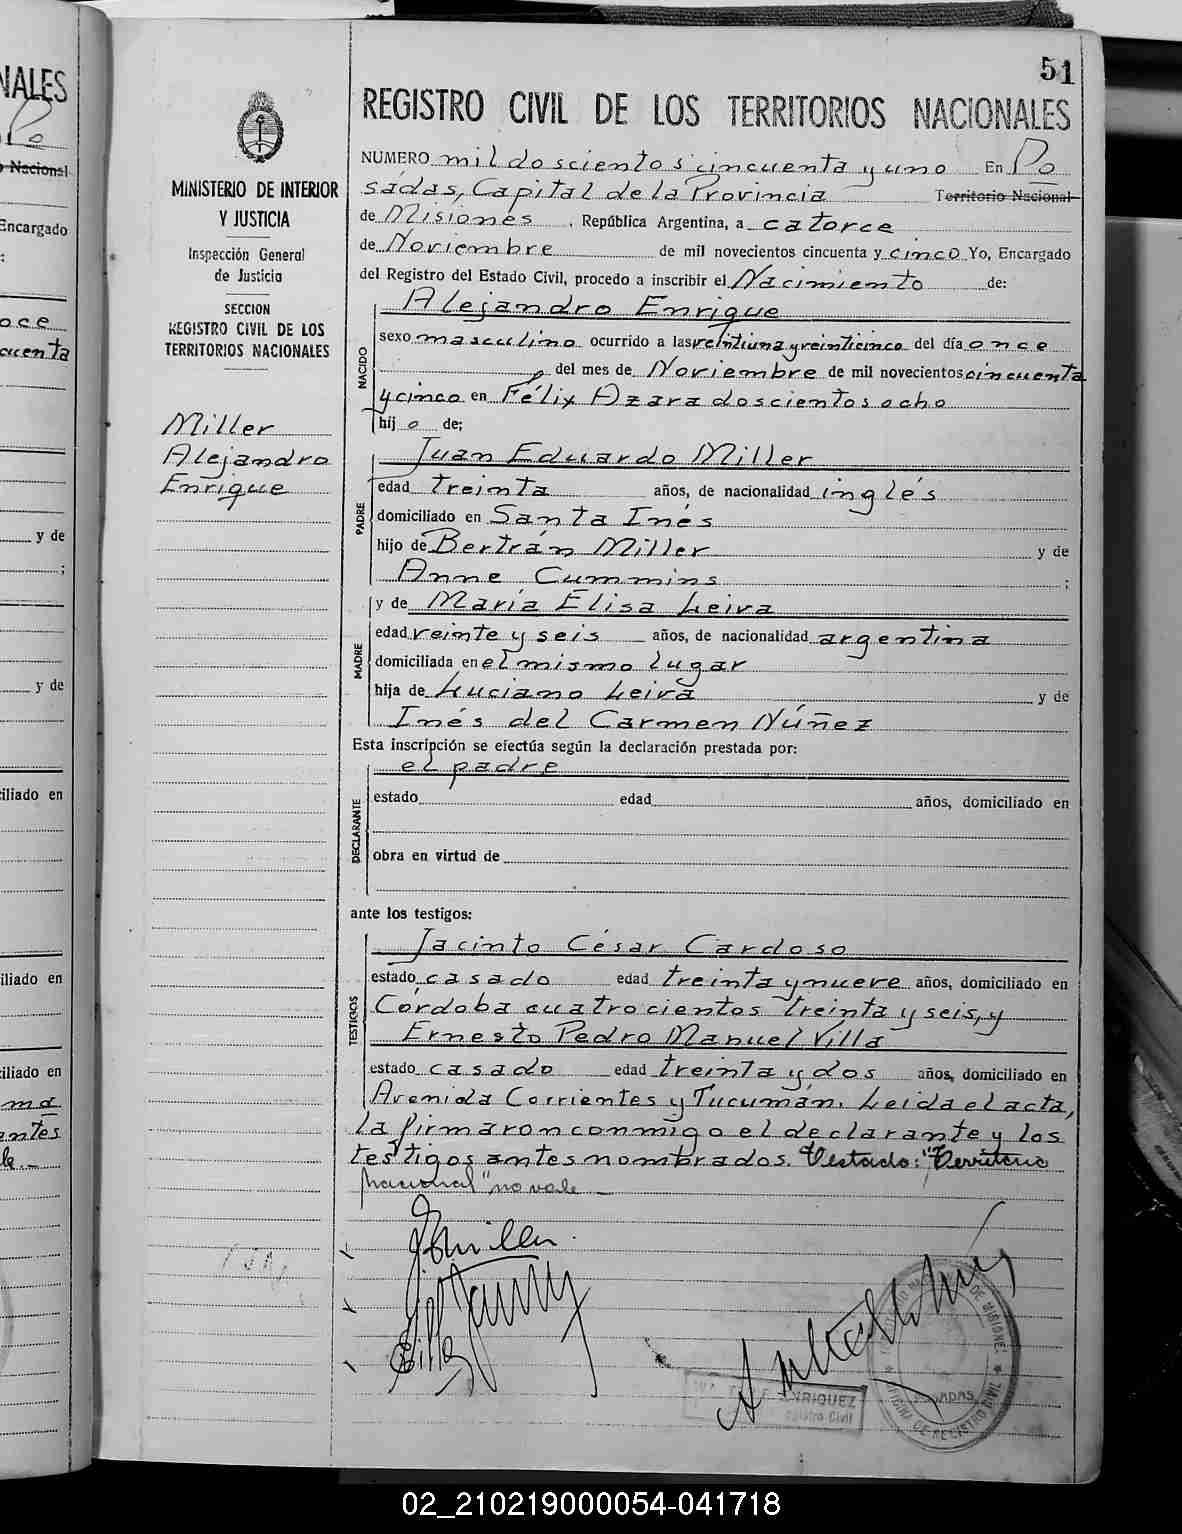 NALES
Po
o Nacional
Encargado
:
oce
cuenta
y de
;
y de
iliado en
iliado en
iliado en
ma
antes
le.-
MINISTERIO DE INTERIOR
Y JUSTICIA
Inspección General
de Justicia
SECCION
REGISTRO CIVIL DE LOS
TERRITORIOS NACIONALES
Miller
Alejandro
Enrique
51
REGISTRO CIVIL DE LOS TERRITORIOS NACIONALES
NUMERO mil doscientos cincuenta y uno En Po
sadas, Capital de la Provincia Territorio Nacional
de Misiones, República Argentina, a catorce
de Noviembre de mil novecientos cincuenta y cinco Yo, Encargado
del Registro del Estado Civil, procedo a inscribir el Nacimiento de:
NACIDO
Alejandro Enrique
sexo masculino ocurrido a las veintiuna y veinticinco del día once
, del mes de Noviembre de mil novecientos cincuenta
y cinco en Félix Azara doscientos ocho
hijo de;
PADRE
Juan Eduardo Miller
edad treinta años, de nacionalidad inglés
domiciliado en Santa Inés
hijo de Bertrán Miller y de
Anne Cummins ;
MADRE
y de María Elisa Leiva
edad veinte y seis años, de nacionalidad argentina
domiciliada en el mismo lugar
hija de Luciano Leiva y de
Inés del Carmen Núñez
Esta inscripción se efectúa según la declaración prestada por:
DECLARANTE
el padre
estado edad años, domiciliado en
obra en virtud de
ante los testigos:
TESTIGOS
Jacinto César Cardoso
estado casado edad treinta y nueve años, domiciliado en
Córdoba cuatrocientos treinta y seis, y
Ernesto Pedro Manuel Villa
estado casado edad treinta y dos años, domiciliado en
Avenida Corrientes y Tucumán. Leida el acta,
la firmaron conmigo el declarante y los
testigos antes nombrados. Testado: "Territorio
Nacional" no vale -
JEMiller
ENRIQUEZ
Registro Civil
DE MISIONES
POSADAS
OFICINA DE REGISTRO CIVIL
02_210219000054-041718